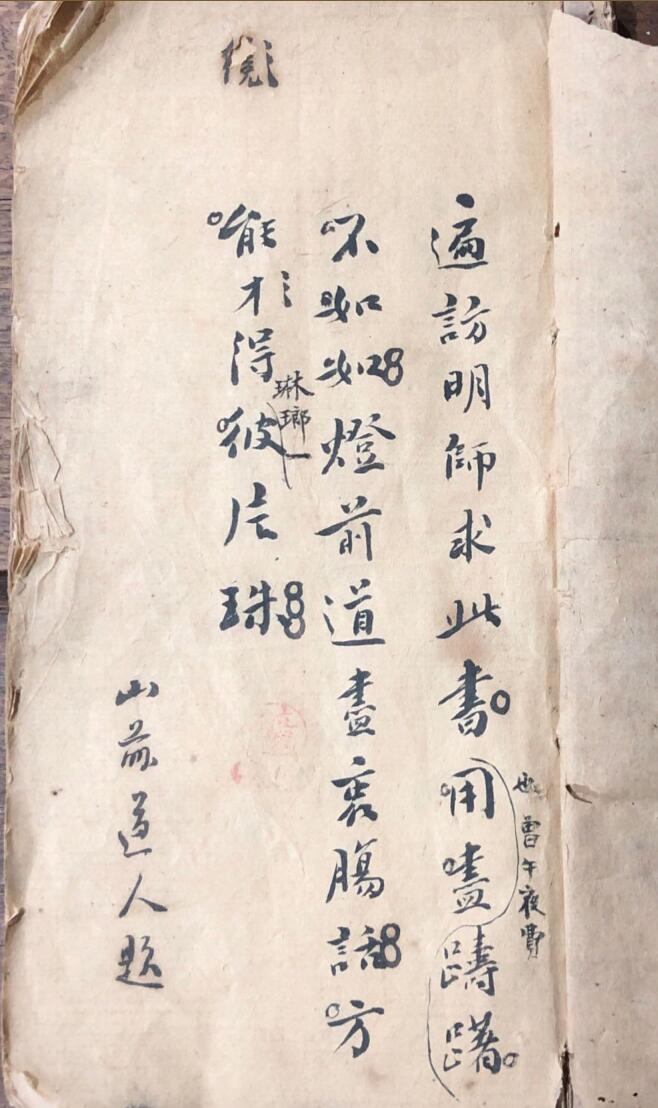 遍訪明師求此書用盡躊躇
也曾午夜費
不如如燈前道盡衷腸話方
能於得彼片珠
琳瑯一
山前道人題